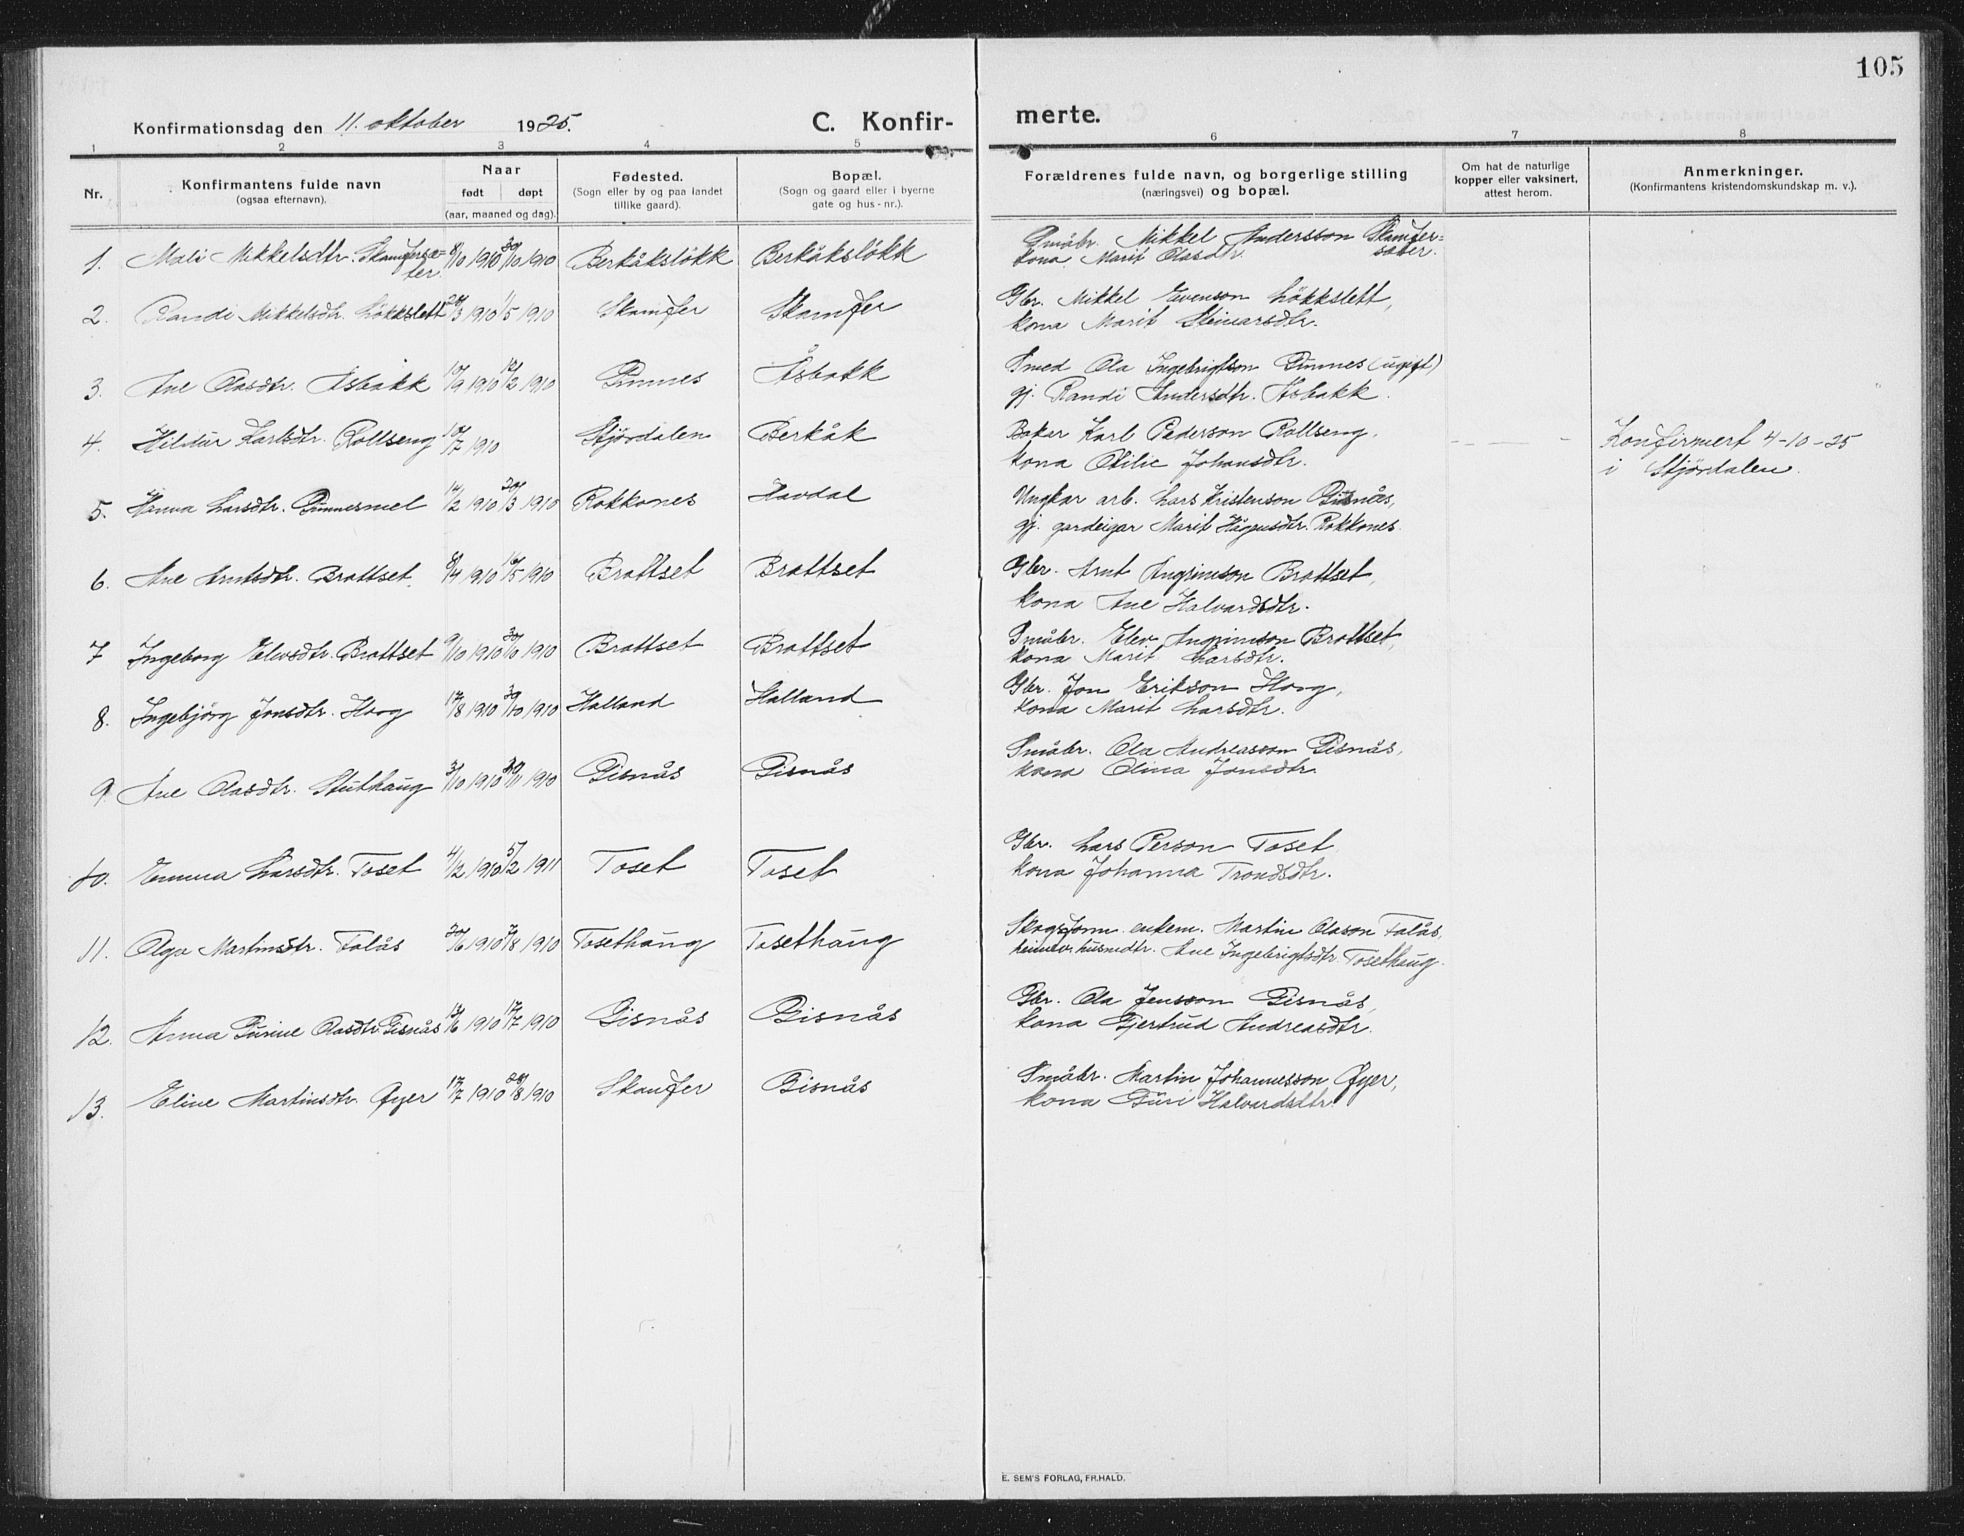 105
Konfirmationsdag den 11. oktober 1925.
C. Konfirmerte.
1 2 3 4 5 6 7 8
Nr.
Konfirmantens fulde navn
(ogsaa efternavn).
Naar
født døpt
(aar, maaned og dag).
Fødested.
(Sogn eller by og paa landet
tillike gaard).
Bopæl.
(Sogn og gaard eller i byerne
gate og hus-nr.).
Forældrenes fulde navn, og borgerlige stilling
(næringsvei) og bopæl.
Om hat de naturlige
kopper eller vaksinert,
attest herom.
Anmerkninger.
(Konfirmantens kristendomskundskap m. v.).
1. Mali Mikkelsdtr. Skamfersæ-
ter 8/10 1910 30/10 1910 Berkåksløkk Berkåksløkk
Småbr. Mikkel Andersson Skamfer=
kona Marit Olasdtr. sæter.
2. Randi Mikkelsdtr. Løkkslett 20/3 1910 1/5 1910 Skamfer Skamfer
Gbr. Mikkel Evenson Løkkslett,
kona Marit Steinarsdtr.
3. Ane Olasdtr. Åsbakk 10/9 1910 12/2 1910 Gunnes Åsbakk
Smed Ola Ingebrigtson Gunnes (ugift)
gj. Randi Andersdtr. Åsbakk.
4. Hildur Karlsdtr. Rollseng 10/7 1910 Stjørdalen Berkåk
Baker Karl Pederson Rollseng,
kona Otilie Johansdtr.
Konfirmert 4-10-25
i Stjørdalen.
5. Hanna Larsdtr. Gunnesmel 14/2 1910 20/3 1910 Rokkones Havdal
Ungkar arb. Lars Kristenson Gisnås,
gj. gardeigar Marit Hågensdtr. Rokkones
6. Ane Arntsdtr. Brattset 8/4 1910 16/5 1910 Brattset Brattset
Gbr. Arnt Angrimson Brattset,
kona Ane Halvardsdtr.
7 Ingeborg Elevsdtr. Brattset 9/10 1910 30/10 1910 Brattset Brattset
Småbr. Elev Angrimson Brattset,
kona Marit Larsdtr.
8. Ingebjørg Jonsdtr. Hoog 17/8 1910 30/10 1910 Halland Halland
Gbr. Jon Erikson Hoog,
kona Marit Larsdtr.
9 Ane Olasdtr. Stuthaug 3/10 1910 30/11 1910 Gisnås Gisnås
Småbr. Ola Andreasson Gisnås,
kona Olina Jonsdtr.
10. Emma Larsdtr. Toset 4/12 1910 5/2 1911 Toset Toset
Gbr. Lars Person Toset
kona Johanna Trondsdtr.
11. Olga Martinsdtr. Falås 20/6 1910 7/8 1910 Tosethaug Tosethaug
Skogsform. enkem. Martin Olason Falås,
husmdtr. Ane Ingebrigtsdtr. Tosethaug.
12. Anna Gurine Olasdtr. Gisnås 12/6 1910 17/7 1910 Gisnås Gisnås
Gbr. Ola Jensson Gisnås,
kona Gjertrud Andreasdtr.
13. Eline Martinsdtr. Øyer 17/7 1910 28/8 1910 Skamfer Gisnås
Småbr. Martin Johannesson Øyer,
kona Guri Halvardsdtr.
E. SEM'S FORLAG, FR.HALD.